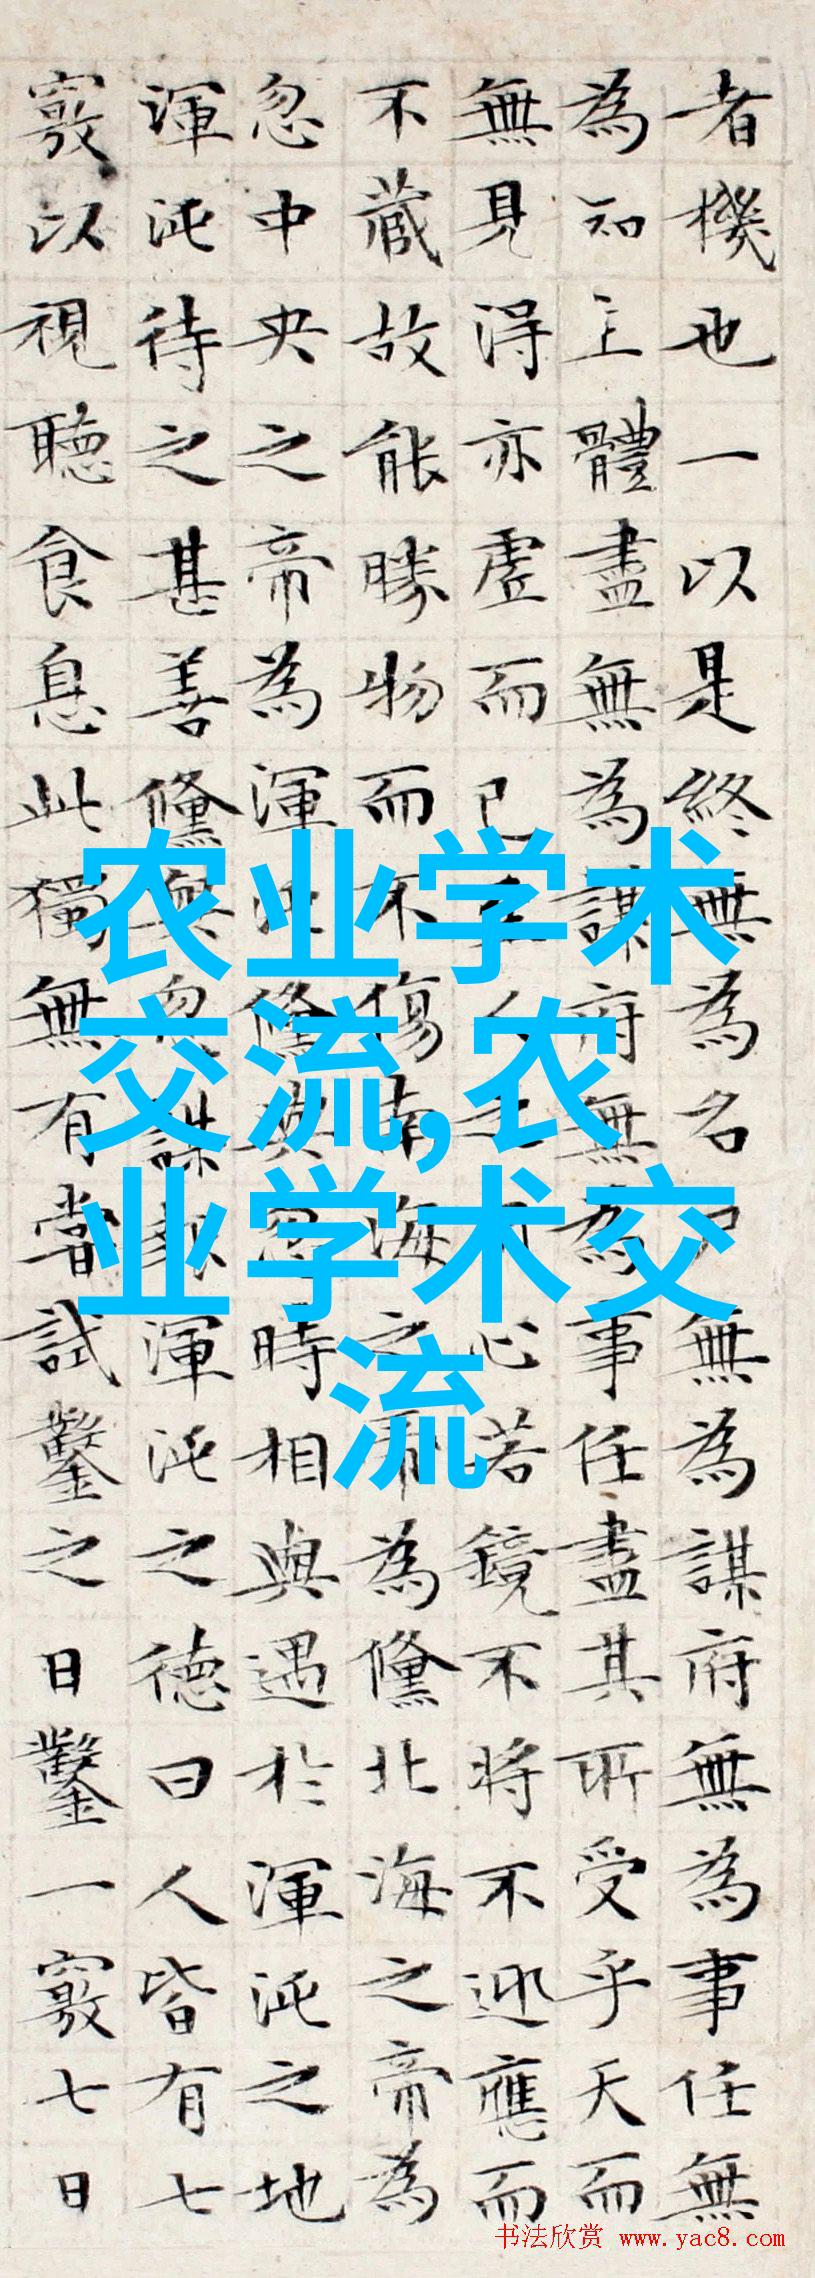 者機也一以是終無為名尸無為謀府無為事任無
為知主體盡無為謀府無為事任盡其所受乎天而
無見淂亦虛而已至人之用心若鏡不將不迎應而
不藏故能勝物而不傷南海之帝為儵北海之帝為
忽中央之帝為渾沌儵與忽時相與遇於渾沌之地
渾沌待之甚善儵與忽謀報渾沌之德曰人皆有七
竅以視聽食息此獨無有嘗試鑿之日鑿一竅七日
农业学术
交流,农
业学术交
流
书法欣赏 www.yac8.com